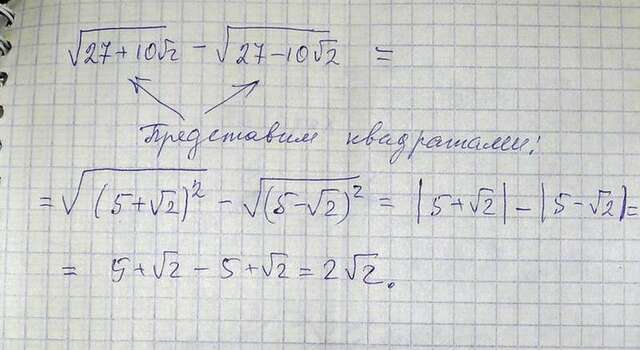 √27+10√2 − √27−10√2 =
Представим квадратами:
= √(5+√2)² − √(5−√2)² = |5+√2| − |5−√2| =
= 5+√2 − 5+√2 = 2√2.